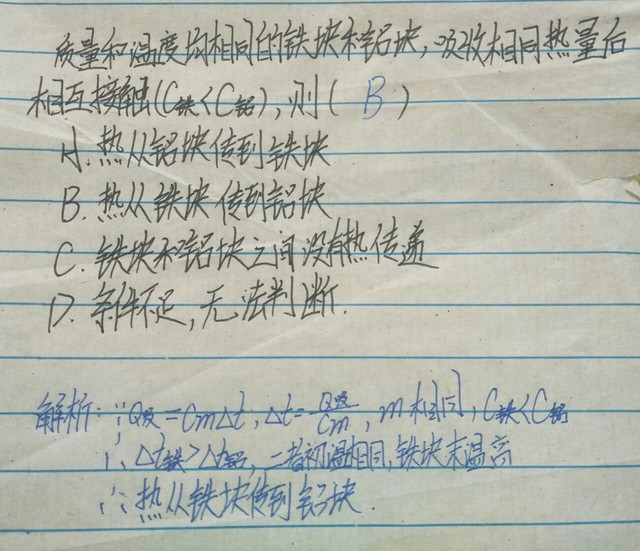 质量和温度均相同的铁块和铝块,吸收相同热量后
相互接触(C铁<C铝),则( B )
A.热从铝块传到铁块
B.热从铁块传到铝块
C.铁块和铝块之间没有热传递
D.条件不足,无法判断.
解析:∵Q吸=Cm△t,△t=Q吸/Cm,m相同,C铁<C铝
∴△t铁>△t铝,二者初温相同,铁块末温高
∴热从铁块传到铝块.